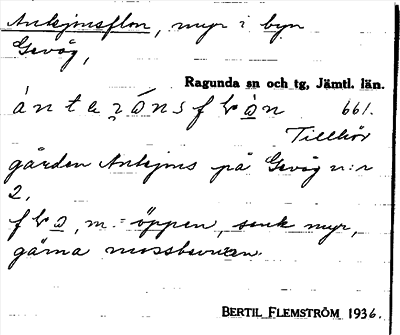 Ankjmsflon, myr i byn
Gevåg,
Ragunda sn och tg, Jämtl. län.
661.
Tillhör
gården Ankjms på Gevåg n:r
2.
m. = öppen, sank myr,
gärna mossbevuxen.
BERTIL FLEMSTRÖM 1936.